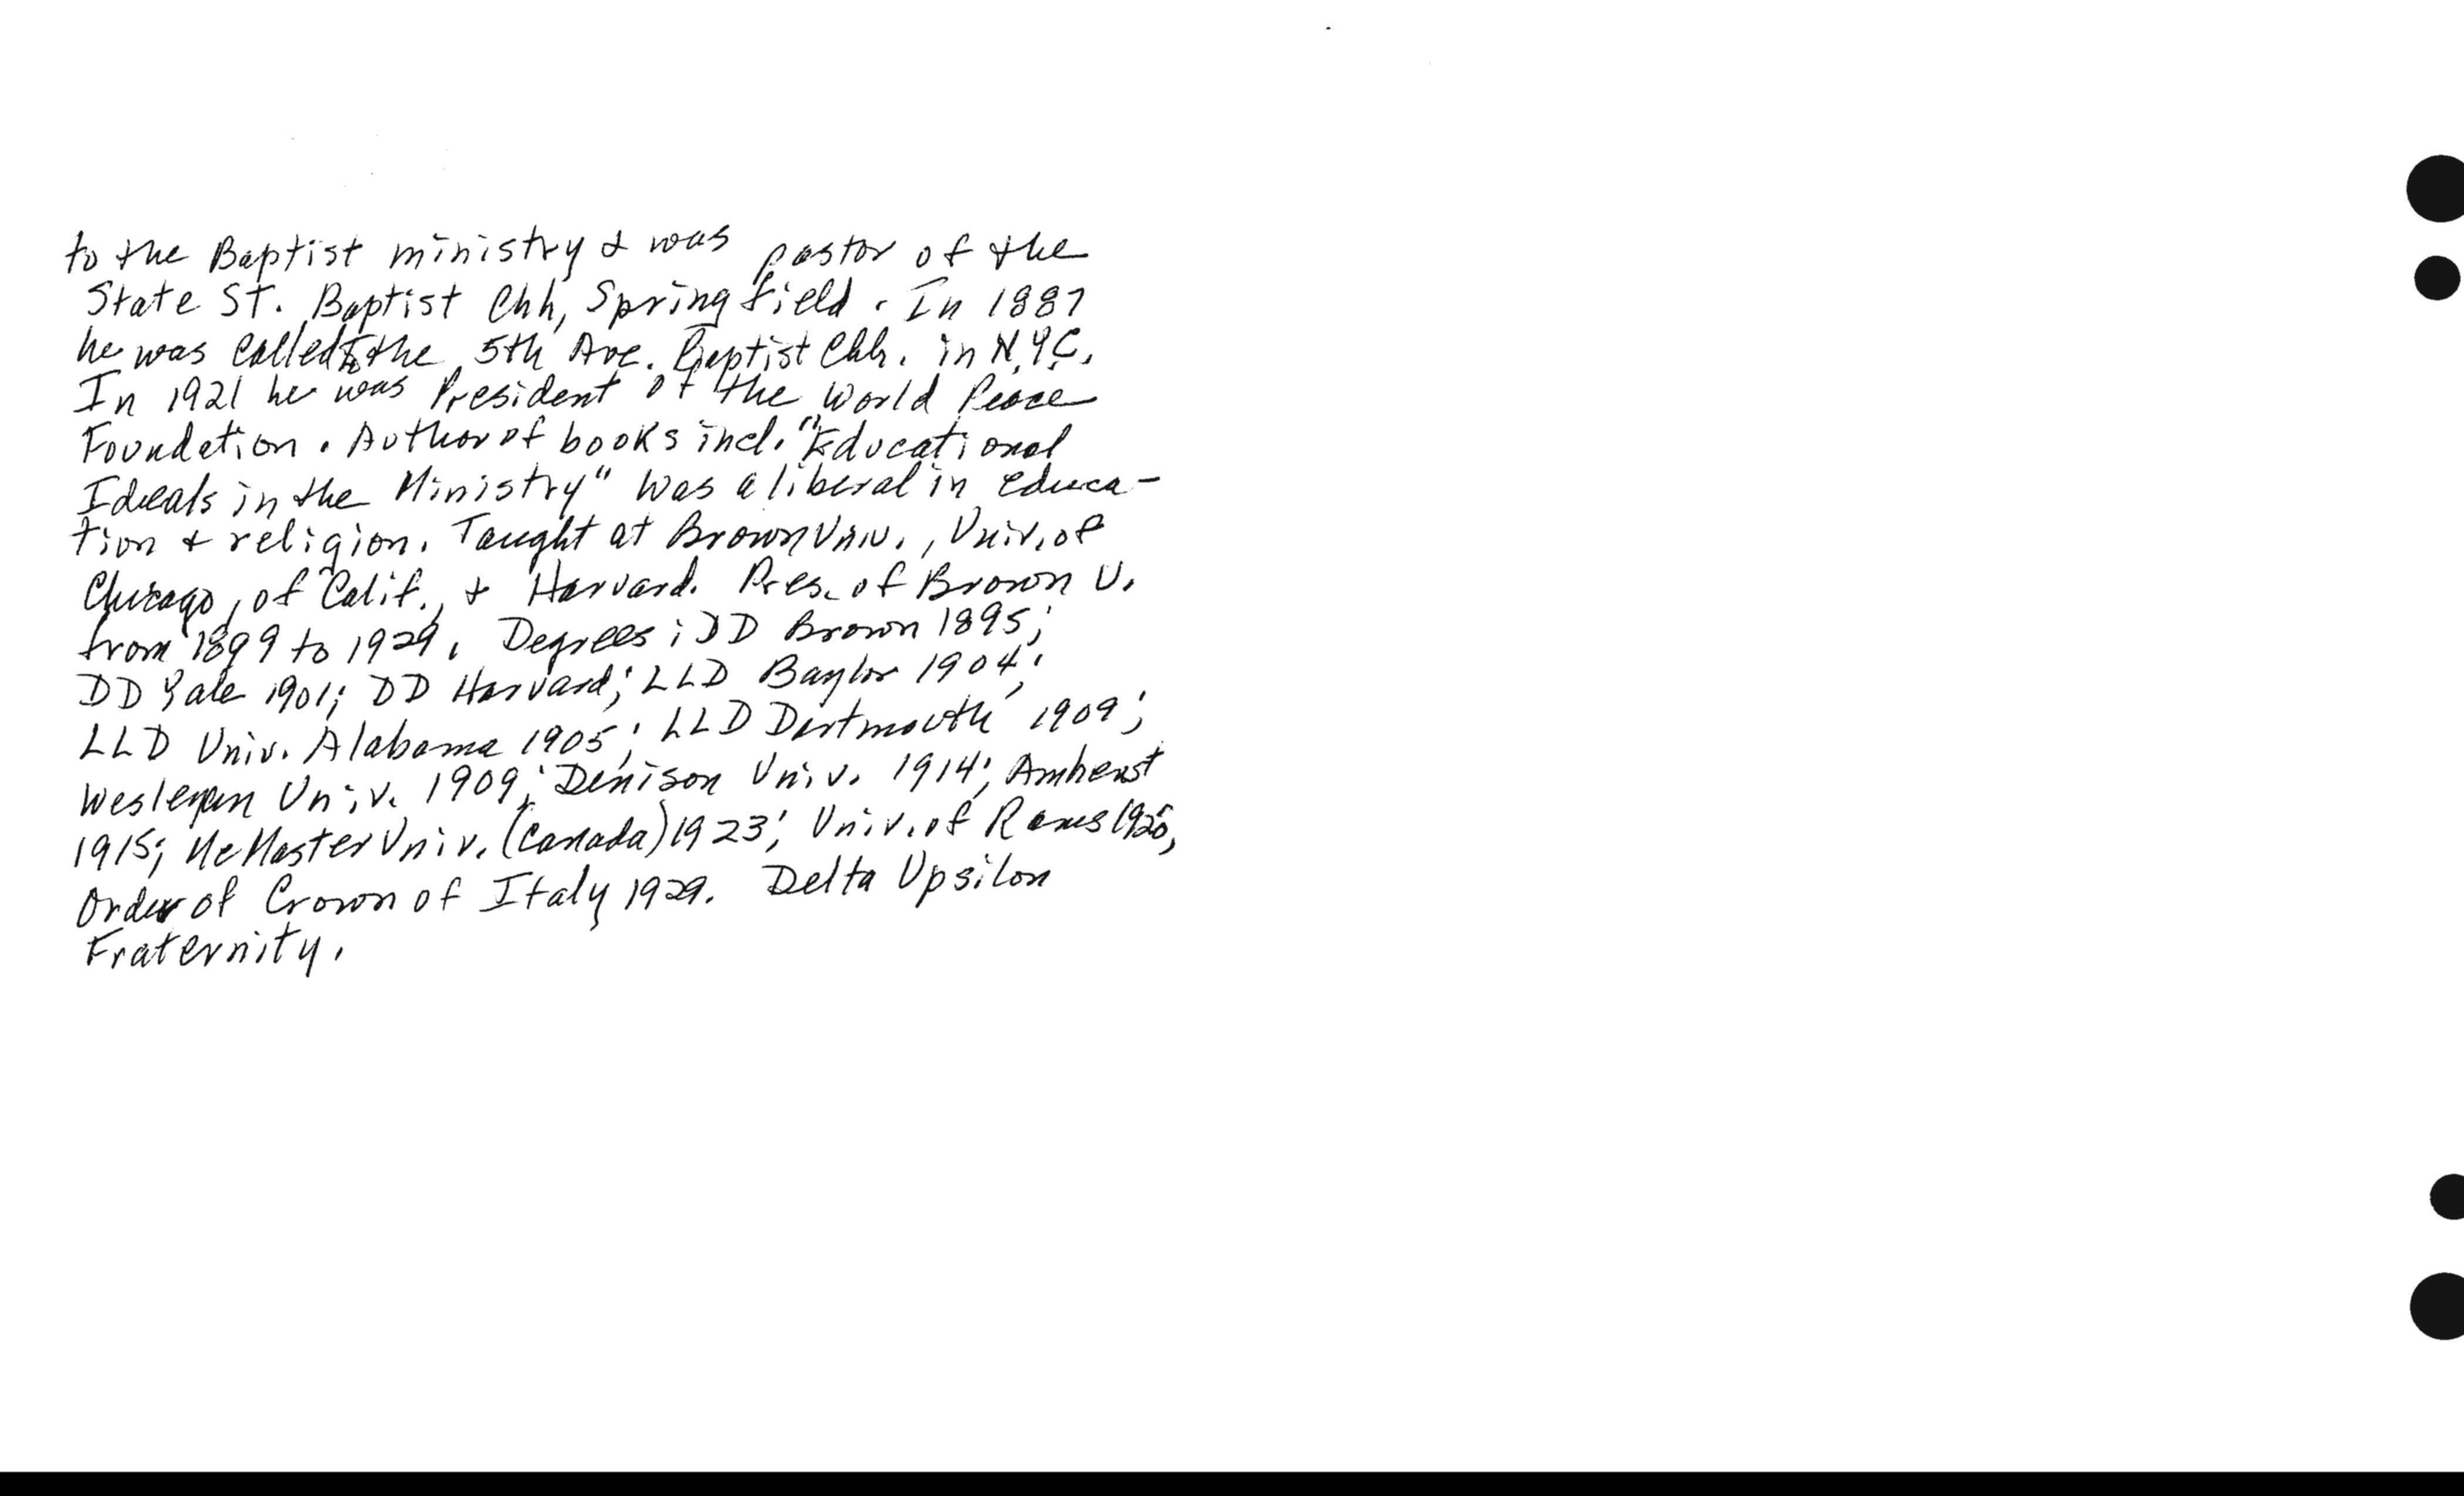 to the Baptist ministry & was pastor of the
State St. Baptist Chh, Springfield. In 1887
he was called to the 5th Ave. Baptist Chh. in N.Y.C.
In 1921 he was President of the World Peace
Foundation. Author of books incl. "Educational
Ideals in the Ministry" Was a liberal in educa-
tion & religion. Taught at Brown Univ., Univ. of
Chicago, of Calif., & Harvard. Pres. of Brown U.
from 1899 to 1929. Degrees: DD Brown 1895;
DD Yale 1901; DD Harvard; LLD Baylor 1904;
LLD Univ. Alabama 1905; LLD Dartmouth 1909;
Wesleyan Univ. 1909; Denison Univ. 1914; Amherst
1915; McMaster Univ. (Canada) 1923; Univ. of
Order of Crown of Italy 1929. Delta Upsilon
Fraternity.